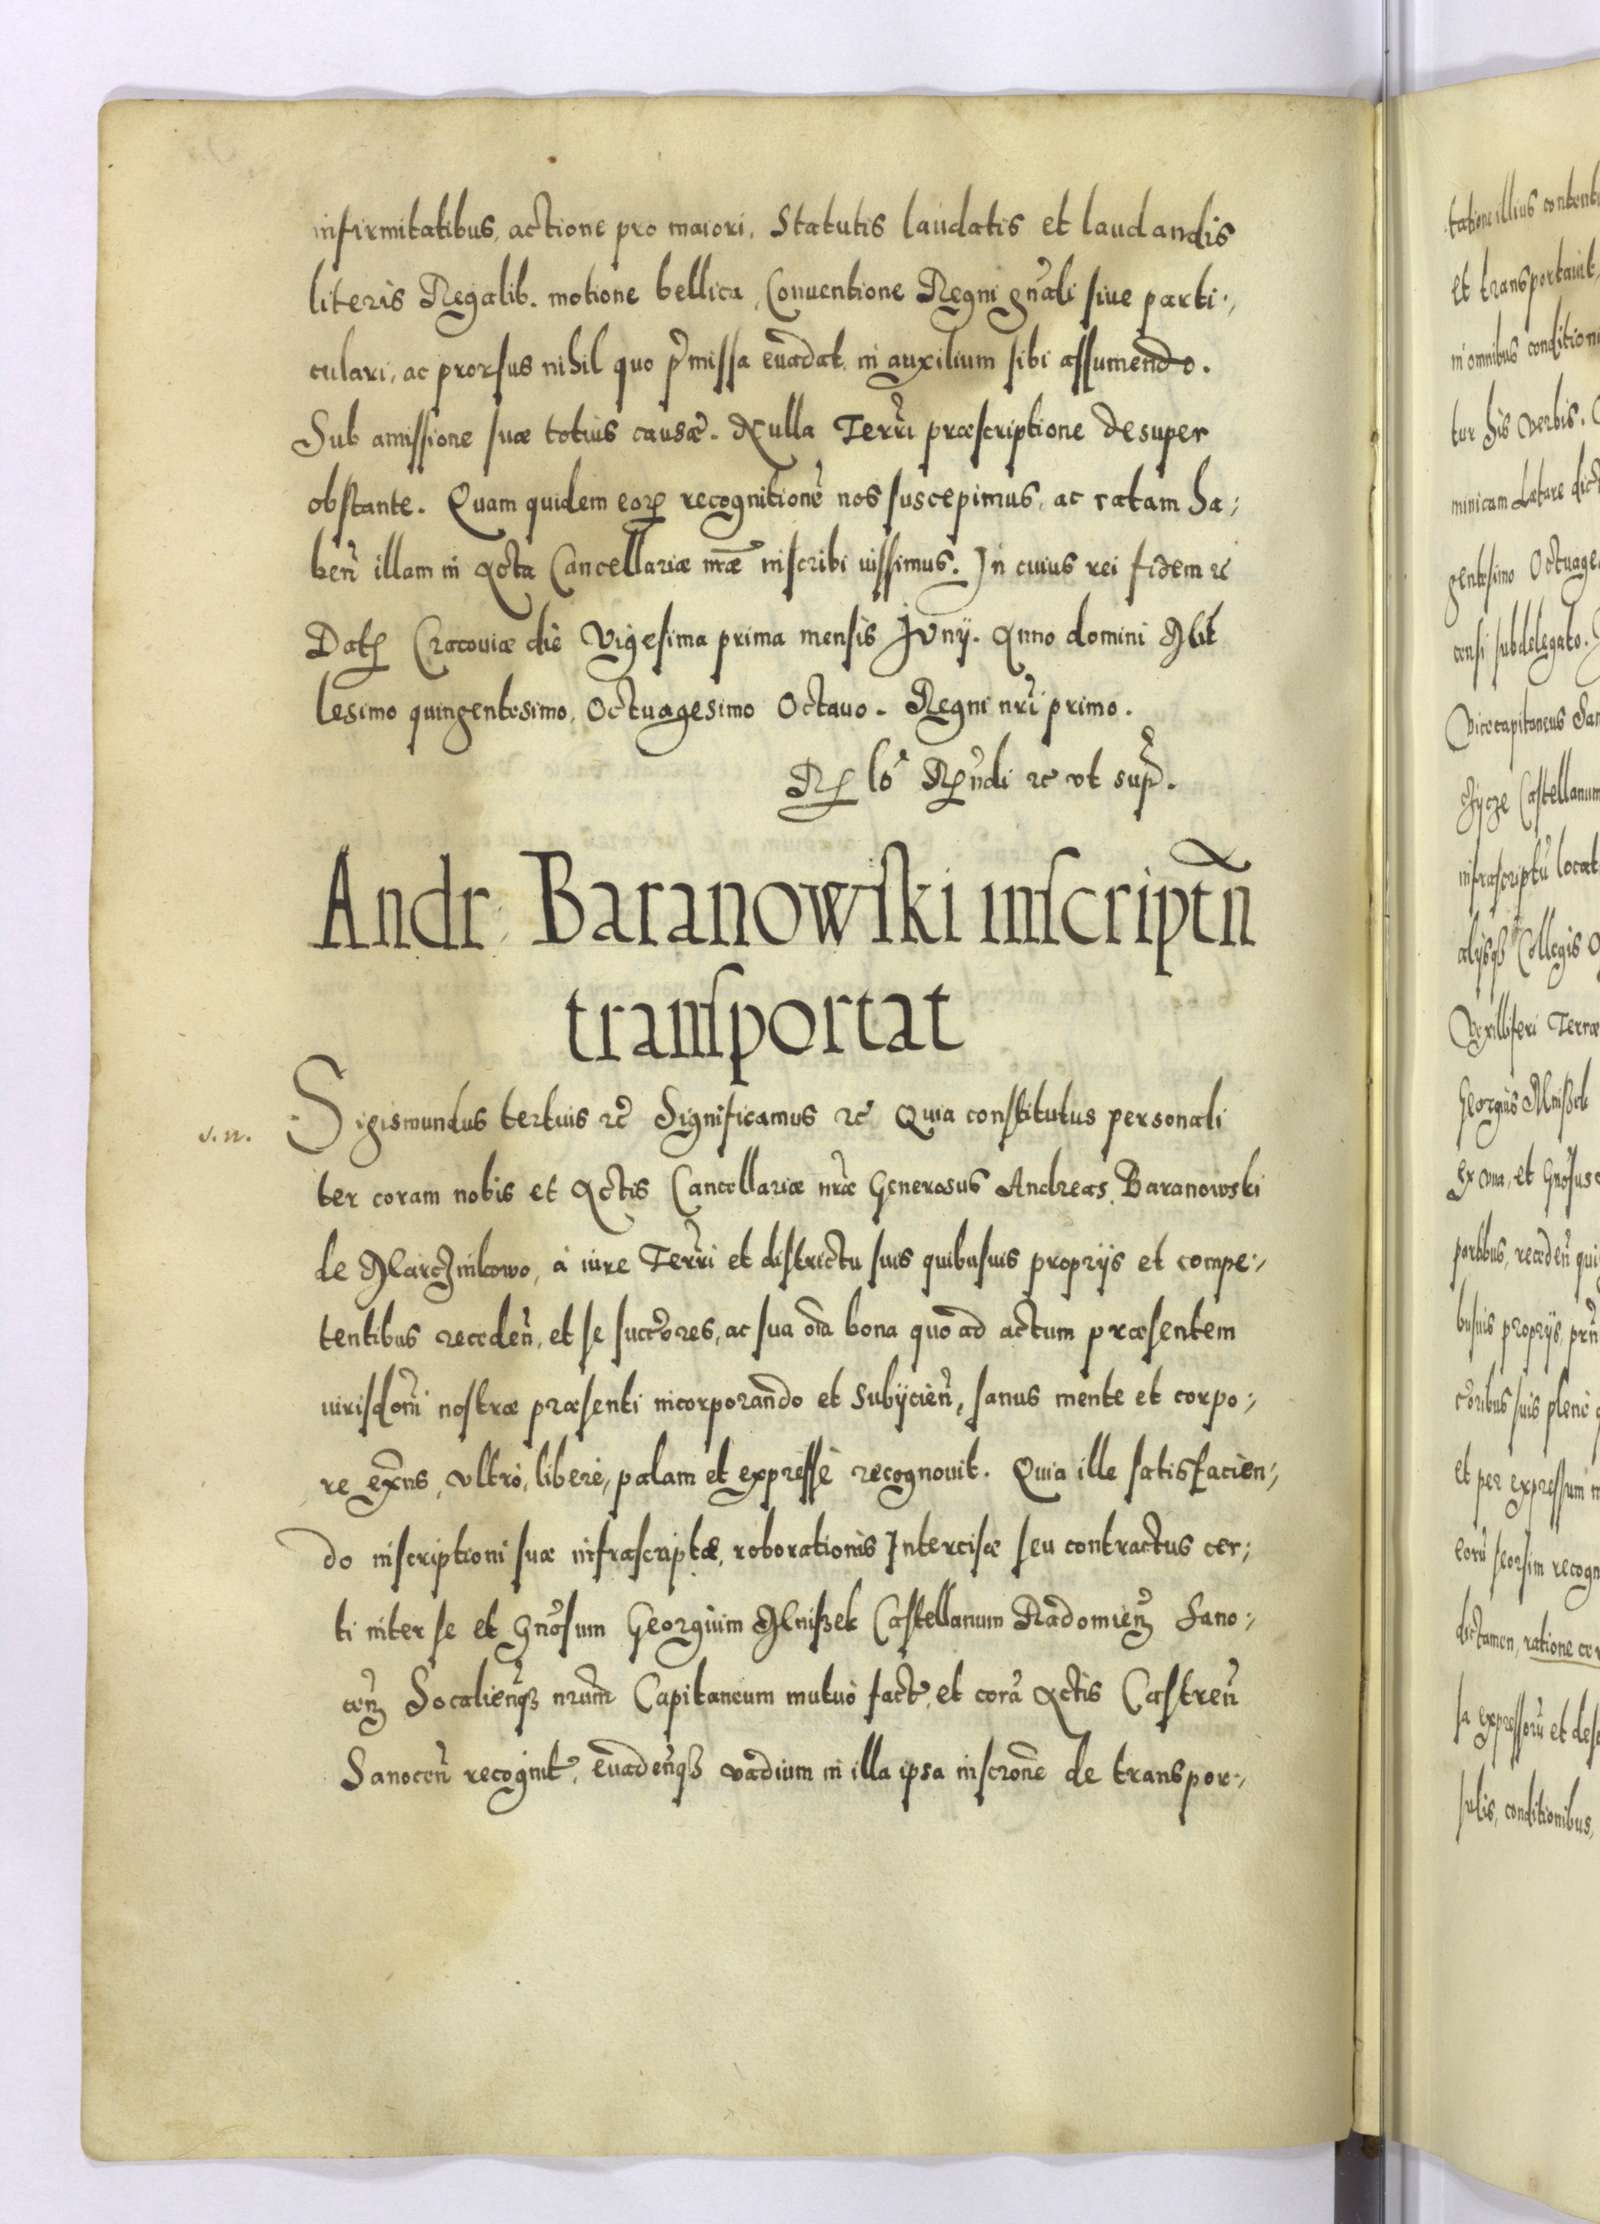 infirmitatibus, actione pro maiori, Statutis laudatis et laudandis
literis Regalib. motione bellica, Conuentione Regni gnãli siue parti-,
culari, ac prorsus nihil quo pʳmissa euadat in auxilium sibi assumendo.
Sub amissione suæ totius causæ. Nulla Terrĩ præscriptione desuper
obstante. Quam quidem eorꝝ recognitionẽ nos suscepimus, ac ratam ha-,
beñ illam in Acta Cancellariæ nr̃æ inscribi iussimus. In cuius rei fidem ꝛc
Datꝭ Cracouiæ die Vigesima prima mensis Junij. Anno domini Mil
lesimo quingentesimo, Octuagesimo Octauo. Regni nr̃i primo.
Rꝭ lõ Rꝑndi ꝛc vt sup̃.
Andr: Baranowſki inſcriptñ
tranſportat
s. n.
Sigismundus tertius ꝛc Significamus ꝛc Quia constitutus personali
ter coram nobis et Actis Cancellariæ nr̃æ Generosus Andreas Baranowski
de Marczinkowo, à iure Terrĩ et districtu suis quibusuis proprijs et compe-,
tentibus recedeñ, et se succ̃ores, ac sua om̃ia bona quo ad actum præsentem
iurisdoñi nostræ præsenti incorporando et Subijcieñ, sanus mente et corpo-,
re exñs, vltrò, liberè, palam et expressè recognouit. Quia ille satisfacien-,
do inscriptioni suæ infrascriptæ, roborationis Intercisæ seu contractus cer-,
ti inter se et Gnõsum Georgium Mniszek Castellanum Radomieñ Sano-,
ceñ Socalieñqꝫ nr̃um Capitaneum mutuò fact, et corã Actis Castreñ
Sanoceñ recognit, euadeñqꝫ vadium in illa ipsa inscrõne de transpor-,
tatione illius
et transportauit,
in omnibus
tur his verbis.
minicam Lætare
gentesimo
censi subdelegato.
Vicecapitaneus
Castellanum
infrascriptũ
alijsqꝫ Collegis
Vexilliferi Terræ
Georgius Mniszek
Ex vna, et Gnõsus
partibus, recedeñ
busuis proprijs,
suis plenè
et per expressum
eorũ seorsim
ratione
et
conditionibus,